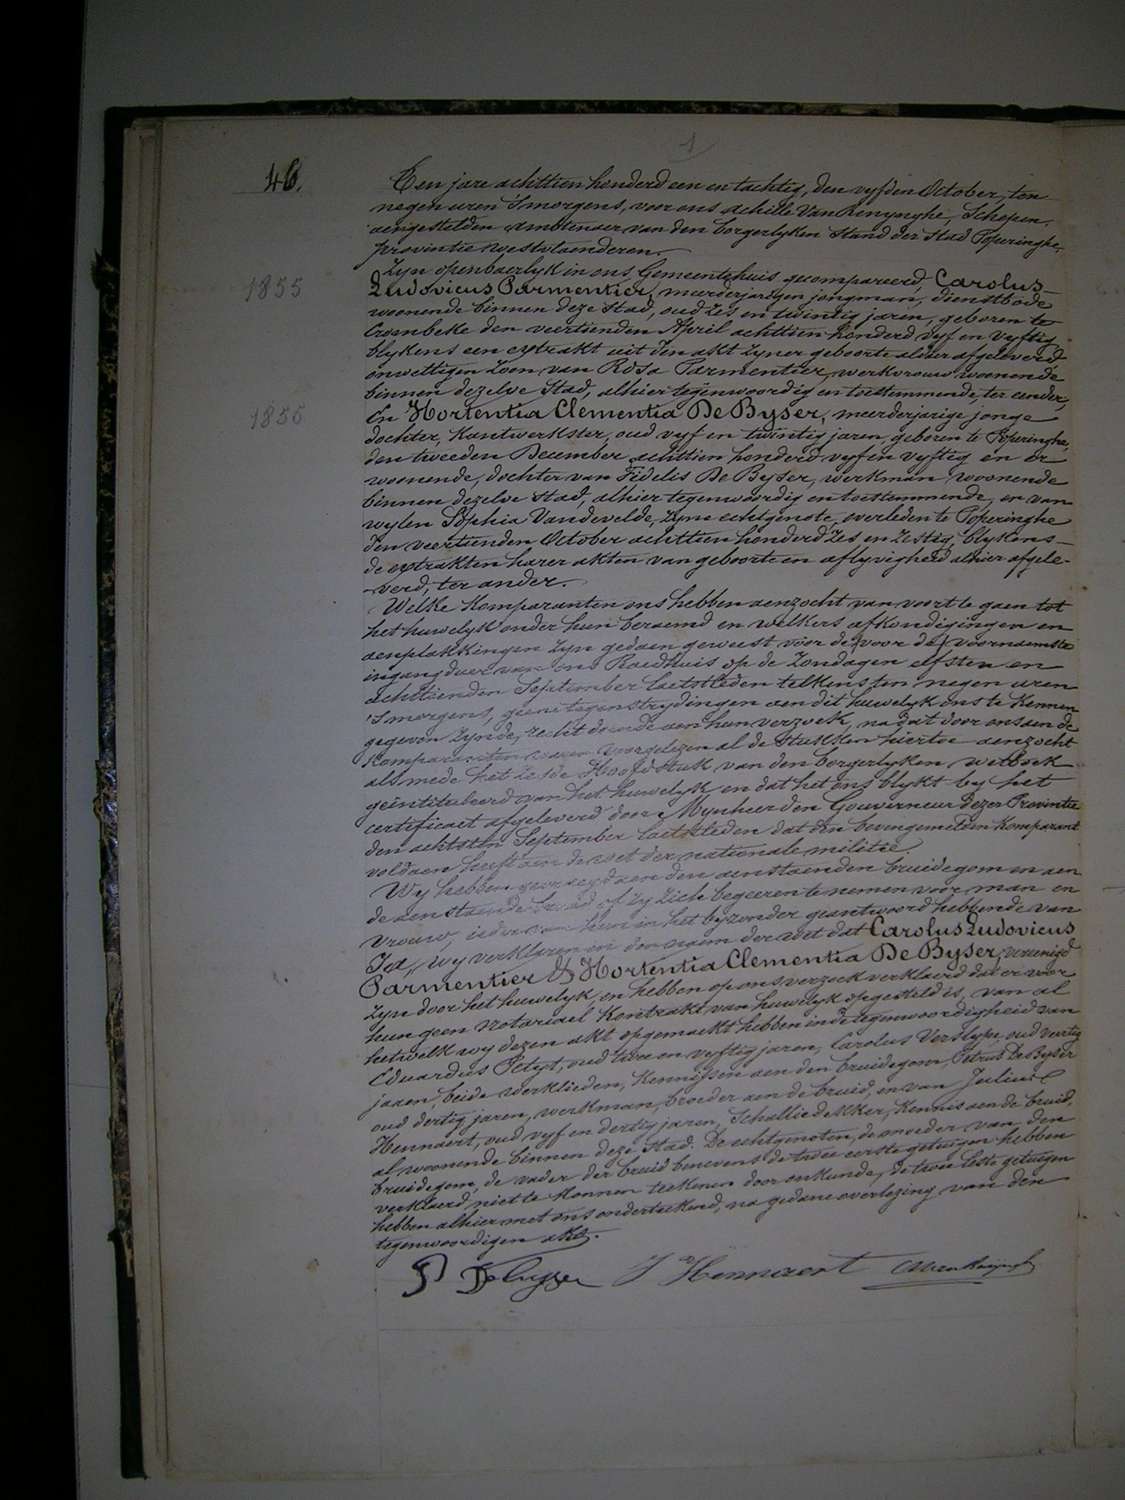 1
46.
Een jare achttien honderd een en tachtig, den vyfden October, ten
negen uren 's morgens, voor ons Achille Van Renynghe, Schepen,
aengestelden Ambtenaer van den borgerlyken Stand der Stad Poperinghe,
provintie Westvlaenderen.
Zyn openbaerlyk in ons Gemeentehuis gecompareerd, Carolus
1855
Ludovicus Parmentier, meerderjarigen jongman, dienstbode
woonende binnen deze Stad, oud zes en twintig jaren, geboren te
Crombeke den veertienden April achttien honderd vyf en vyftig
blykens een extrakt uit den akt zyner geboorte aldaer afgeleverd,
onwettigen zoon van Rosa Parmentier, werkvrouw woonende
binnen dezelve Stad, alhier tegenwoordig en toestemmende, ter eender,
1855
En Hortentia Clementia De Byser, meerderjarige jonge
dochter, Kantwerkster, oud vyf en twintig jaren, geboren te Poperinghe,
den tweeden December achttien honderd vyf en vyftig en er
woonende, dochter van Fidelis De Byser, werkman, woonende
binnen dezelve Stad, alhier tegenwoordig en toestemmende, en van
wylen Sophia Vandevelde, zyne echtgenote, overleden te Poperinghe
den veertienden October achttien honderd zes en zestig, blykens
de extrakten harer akten van geboorte en aflyvigheid alhier afgele-
verd, ter ander.
Welke Komparanten ons hebben aenzocht van voort te gaen tot
het huwelyk onder hun beraemd en welkers afkondigingen en
aenplakkingen zyn gedaen geweest voor de voor de voornaemste
ingangdeur van ons Raedhuis op de Zondagen elfsten en
achttienden September laetstleden telkens ten negen uren
's morgens, geene tegenstrydingen aen dit huwelyk ons te Kennen
gegeven zynde, recht doende aen hun verzoek, na dat door ons aen de
Komparanten waren voorgelezen al de stukken hiertoe aenzocht
als mede het zesde Hoofdstuk van den borgerlyken wetboek
geïntituleerd van het huwelyk, en dat het ons blykt by het
certificaet afgeleverd door Mynheer den Gouverneur dezer Provintie
den achtsten September laetstleden dat den bovengemelden Komparant
voldaen heeft aen de wet der nationale militie.
Wy hebben gevraegd aen den aenstaenden bruidegom en aen
de aenstaende bruid of zy zich begeeren te nemen voor man en
vrouw, ieder van hun in het byzonder geantwoord hebbende van
Ja, wy verklaren in den naem der wet dat Carolus Ludovicus
Parmentier & Hortentia Clementia De Byser, vereenigd
zyn door het huwelyk, en hebben op ons verzoek verklaerd dat er voor
hun geen notariael Kontrakt van huwelyk opgesteld is, van al
hetwelk wy dezen akt opgemaekt hebben in de tegenwoordigheid van
Eduardus Peteyt, oud twee en vyftig jaren, Carolus Verslype, oud veertig
jaren, beide werklieden, Kennissen aen den bruidegom, Petrus De Byser
oud dertig jaren, werkman, broeder aen de bruid, en van Julius
Hennaert, oud vyf en dertig jaren, Schaliedekker, Kennis aen de bruid,
al woonende binnen deze Stad. De echtgenoten, de moeder van den
bruidegom, de vader der bruid benevens de twee eerste getuigen hebben
verklaerd niet te Konnen teekenen door onkunde, de twee leste getuigen
hebben alhier met ons onderteekend, na gedane overlezing van den
tegenwoordigen akt.
P De Byser J Hennaert